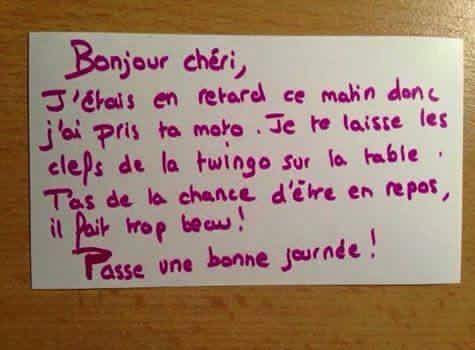 Bonjour chéri,
J'étais en retard ce matin donc
j'ai pris ta moto. Je te laisse les
clefs de la twingo sur la table.
T'as de la chance d'être en repos,
il fait trop beau!
Passe une bonne journée!